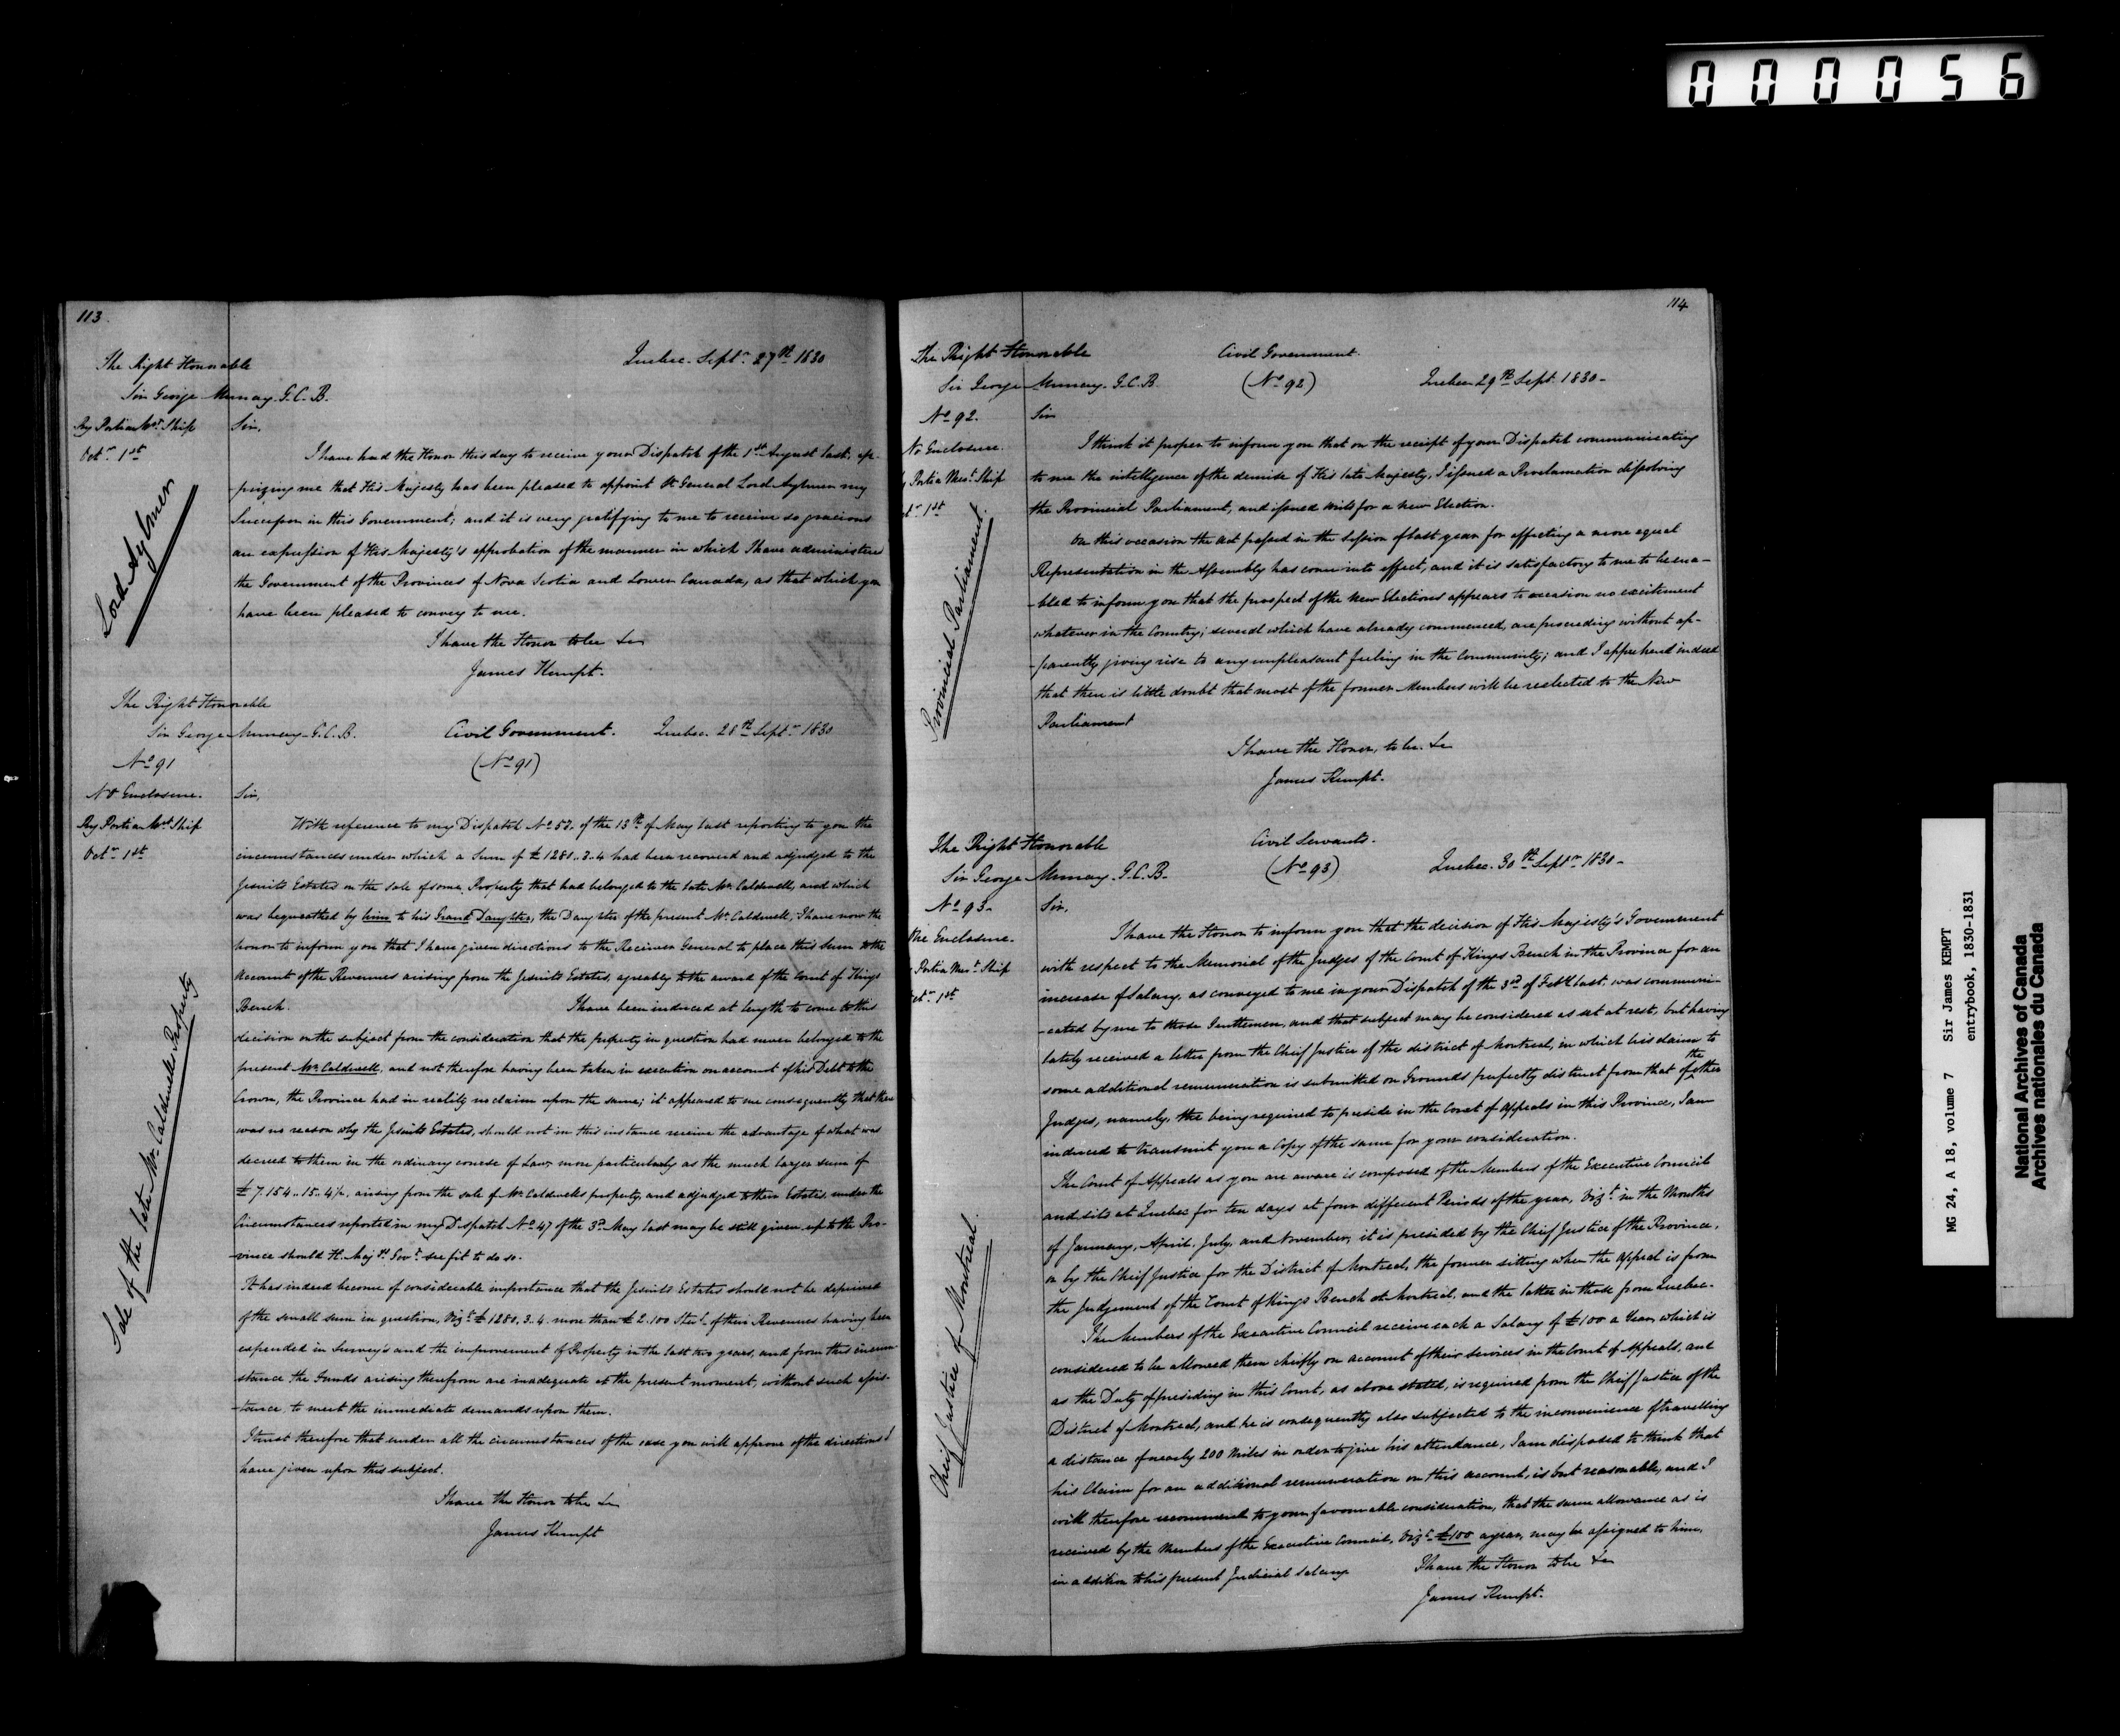 000056
113.
The Right Honorable
Sir George Murray. G.C.B.
Quebec. Septr. 27th 1830
By Portia Mert. Ship
Octr. 1st
Lord Aylmer
Sir,
I have had the Honor this day to receive your Dispatch of the 1st August last, ap-
-prizing me that His Majesty has been pleased to appoint Lt General Lord Aylmer my
Successor in this Government; and it is very gratifying to me to receive so gracious
an expression of His Majesty's approbation of the manner in which I have administered
the Government of the Provinces of Nova Scotia and Lower Canada, as that which you
have been pleased to convey to me.
I have the Honor to be &c
James Kempt.
The Right Honorable
Sir George Murray. G.C.B.
Civil Government.
Quebec. 28th Septr. 1830
No 91
(No 91)
No Enclosure.
By Portia Mert Ship
Octr. 1st
Sale of the late Mr. Caldwells Property
Sir,
With reference to my Dispatch No 57. of the 13th of May last reporting to you the
circumstances under which a Sum of £1280..3.4 had been recovered and adjudged to the
Jesuits Estates on the sale of some Property that had belonged to the late Mr. Caldwell, and which
was bequeathed by him to his Grand Daughter, the Daughter of the present Mr. Caldwell; I have now the
honor to inform you that I have given directions to the Receiver General to place this Sum to the
account of the Revenues arising from the Jesuits Estates, agreably to the award of the Court of Kings
Bench. I have been induced at length to come to this
decision on the subject from the consideration that the property in question had never belonged to the
present Mr. Caldwell, and not therefore having been taken in execution on account of his Debt to the
Crown, the Province had in reality no claim upon the same; it appeared to me consequently that there
was no reason why the Jesuits Estates, should not in this instance receive the advantage of what was
decreed to them in the ordinary course of Law, more particularly as the much larger sum of
£7.154..15..4½, arising from the sale of Mr. Caldwells property, and adjudged to these Estates, under the
Circumstances reported in my Dispatch No 47 of the 3d May last may be still given up to the Pro-
-vince should H. Majys Govt. see fit to do so.
It has indeed become of considerable importance that the Jesuits Estates should not be deprived
of the small sum in question, Vizt £1280.3..4. more than £2.100 Sterl. of their Revenues having been
expended in Survey's and the improvement of Property in the last two years, and from this circum-
stance the Funds arising therefrom are inadequate at the present moment, without such assis-
-tance, to meet the immediate demands upon them.
I trust therefore that under all the circumstances of the case you will approve of the directions I
have given upon this subject.
I have the Honor to be &c
James Kempt
114
The Right Honorable
Sir George Murray. G.C.B.
Civil Government.
(No 92)
Quebec 29th Sept. 1830-
No 92.
No Enclosure.
Portia Mert. Ship
1st
Provincial Parliament.
Sir
I think it proper to inform you that on the receipt of your Dispatch communicating
to me the intelligence of the demise of His late Majesty, I issued a Proclamation dissolving
the Provincial Parliament, and issued writs for a new Election.
On this occasion the Act passed in the Session of last year for effecting a more equal
Representation in the Assembly has come into effect, and it is satisfactory to me to be ena-
-bled to inform you that the prospect of the New Elections appears to occasion no excitement
whatever in the Country; several which have already commenced, are proceeding without ap-
-parently giving rise to any unpleasant feeling in the Community; and I apprehend indeed
that there is little doubt that most of the former Members will be reelected to the New
Parliament
I have the Honor, to be. &c
James Kempt.
The Right Honorable
Sir George Murray. G.C.B.
Civil Servants.
(No 93)
Quebec. 30th Septr. 1830-
No 93.
One Enclosure.
Portia Mert. Ship
Octr. 1st
Chief Justice of Montreal.
Sir,
I have the Honor to inform you that the decision of His Majesty's Government
with respect to the Memorial of the Judges of the Court of Kings Bench in the Province for an
increase of Salary, as conveyed to me in your Dispatch of the 3d of Feby last. was communi-
-cated by me to those Gentlemen, and that subject may be considered as set at rest, but having
lately received a letter from the Chief Justice of the district of Montreal, in which his claim to
some additional remuneration is submitted on Grounds perfectly distinct from that of the other
Judges, namely, the being required to preside in the Court of Appeals in this Province, I am
induced to transmit you a Copy of the same for your consideration.
The Court of Appeals as you are aware is composed of the Members of the Executive Council
and sits at Quebec for ten days at four different Periods of the year, Vizt. in the Months
of January, April, July, and November, it is presided by the Chief Justice of the Province,
or by the Chief Justice for the District of Montreal, the former sitting when the Appeal is from
the Judgement of the Court of Kings Bench at Montreal, and the latter in those from Quebec.
The Members of the Executive Council receive each a Salary of £100 a Year, which is
considered to be allowed them chiefly on account of their Services in the Court of Appeals, and
as the Duty of presiding in this Court, as above stated, is required from the Chief Justice of the
District of Montreal, and he is consequently also subjected to the inconvenience of travelling
a distance of nearly 200 Miles in order to give his attendance, I am disposed to think that
his Claim for an additional remuneration on this account, is but reasonable, and I
will therefore recommend to your favourable consideration, that the same allowance as is
received by the Members of the Executive Council, Vizt. £100 a year, may be assigned to him,
in addition to his present Judicial Salary.
I have the Honor to be &c
James Kempt.
MG 24, A 18, volume 7 Sir James KEMPT
entrybook, 1830-1831
National Archives of Canada
Archives nationales du Canada